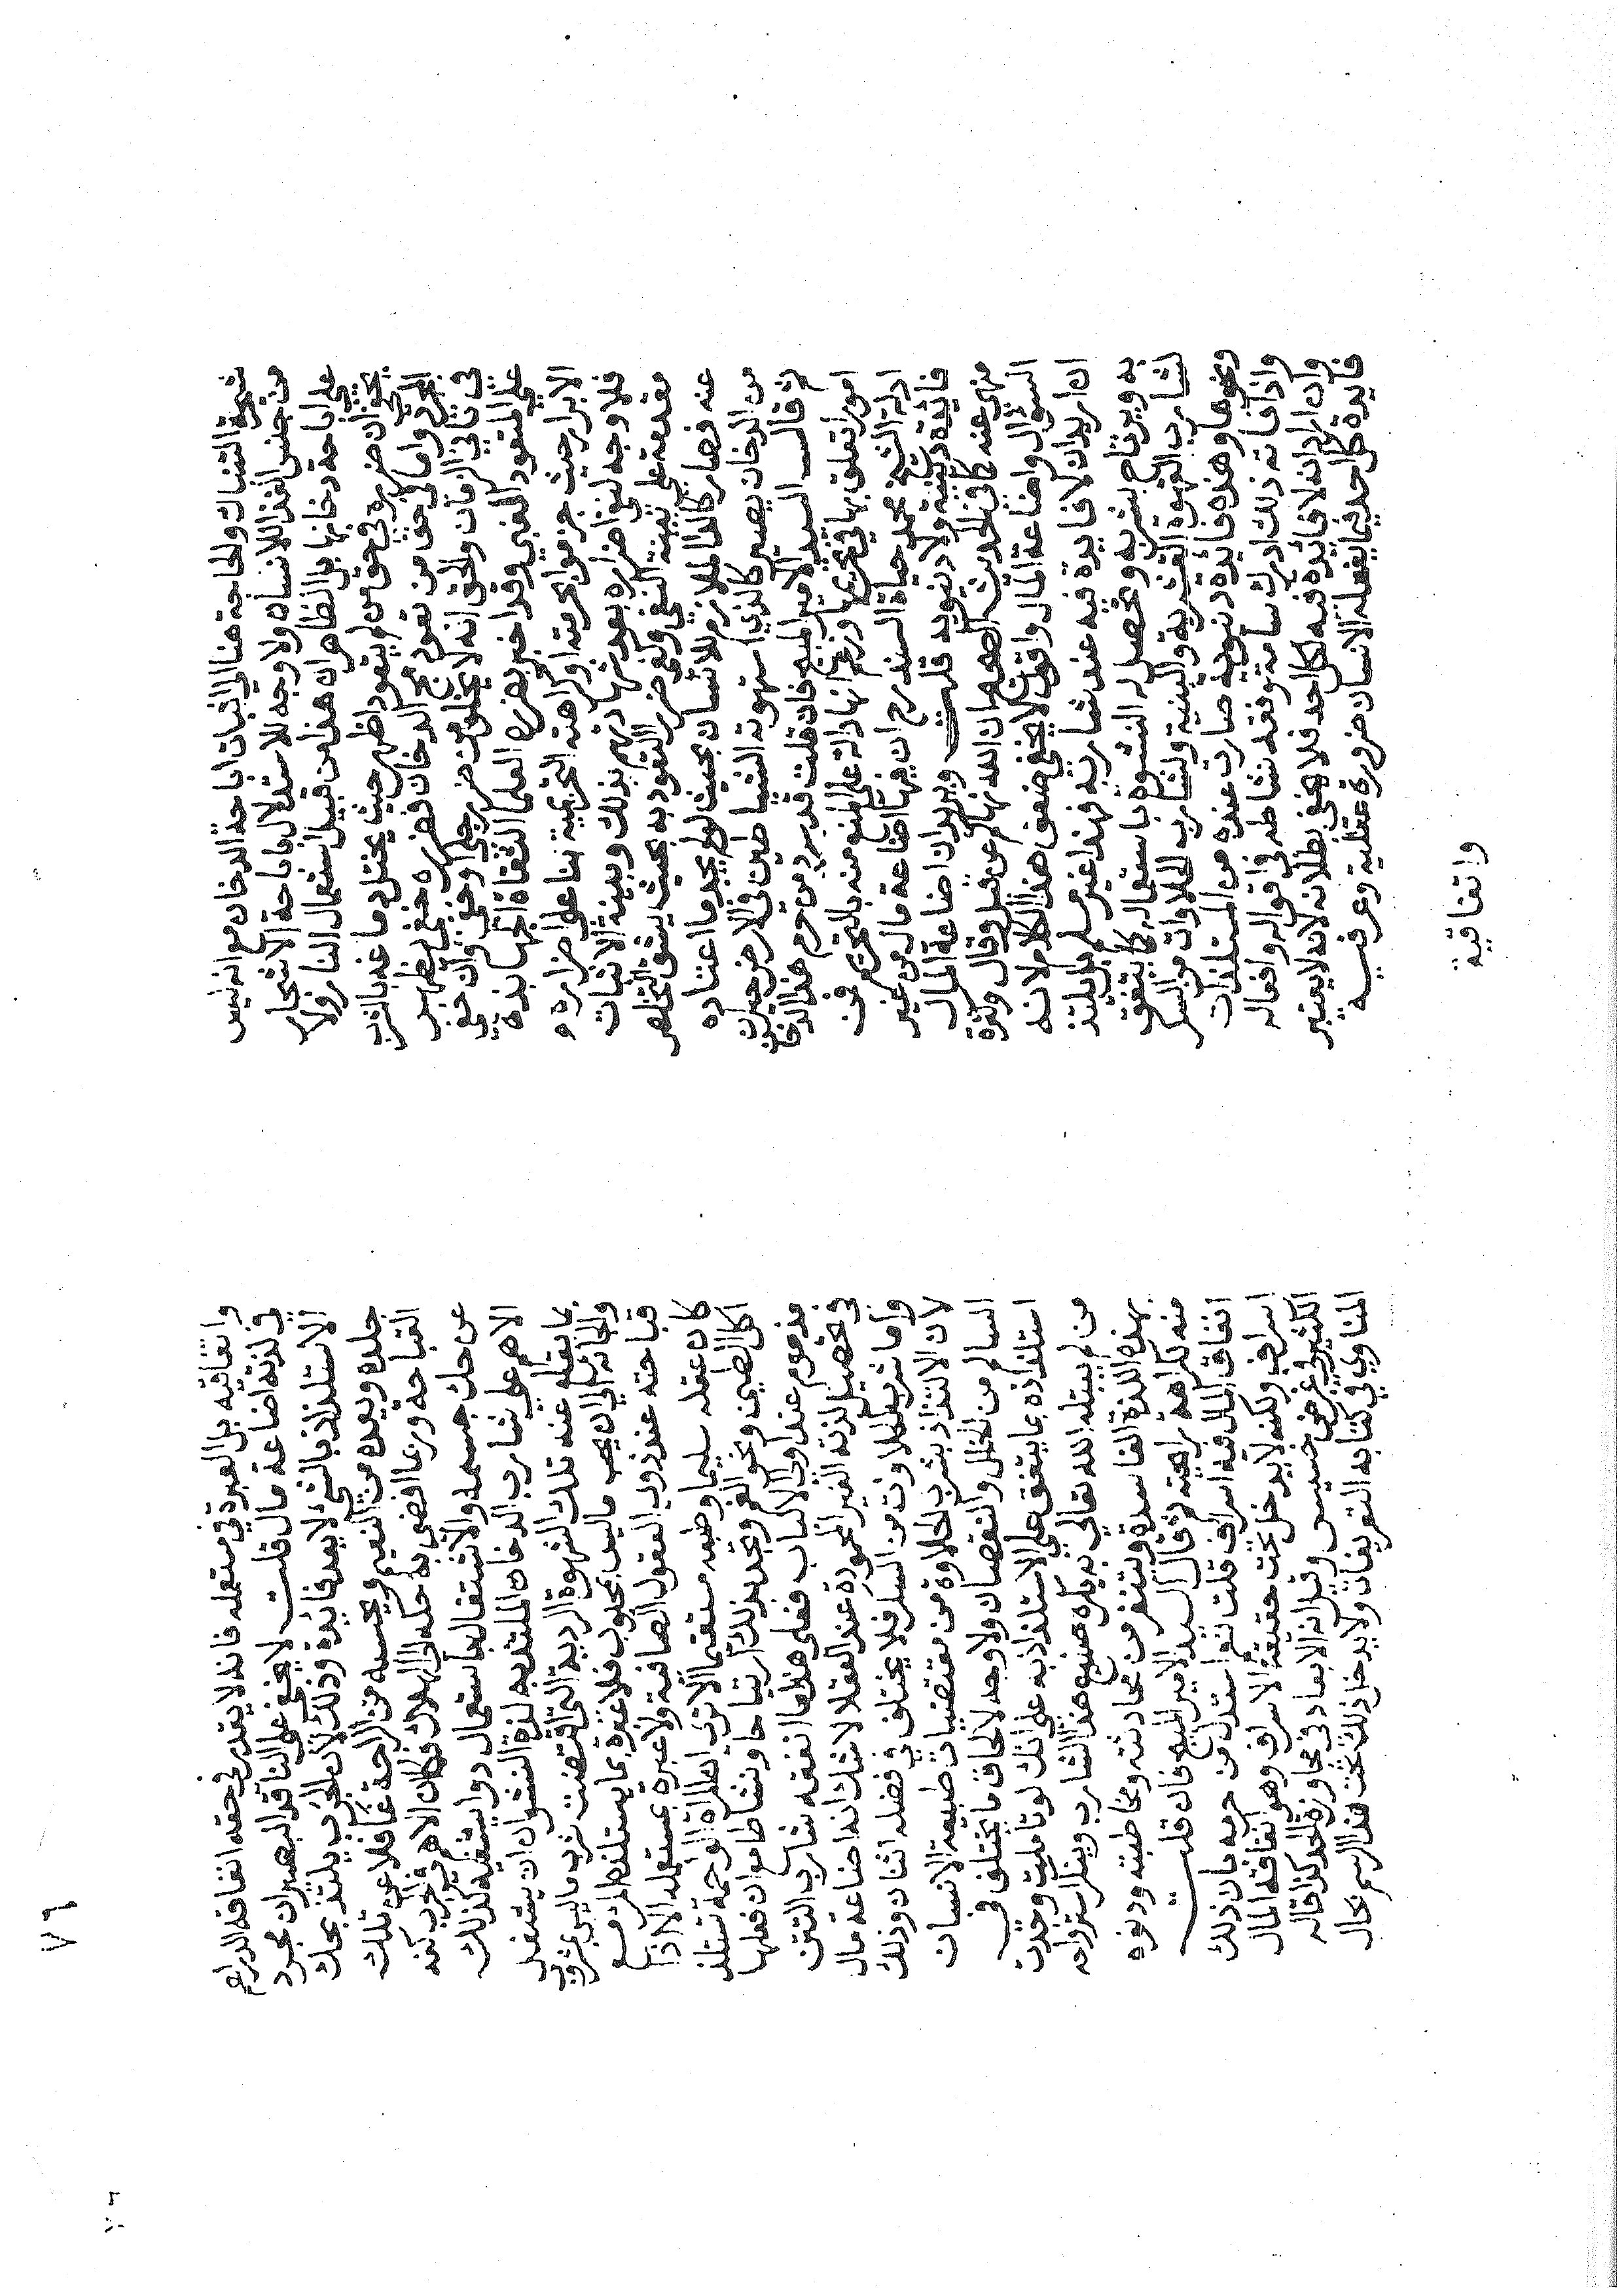 شجرة التنباك والحاجة هنا الى اثبات اباحة الدخان مع انه ليس
من جنس الغذا للانسان ولا وجه للاستدلال باباحة الاشجار
على اباحة دخانها بل الظاهر ان هذا من قبيل استعمال النار ولا
يخفى ان ضرره في حق من لم يتعود اظهر حيث يختل دماغه بالشرب
المرة واما في حق من تعود مج الدخان فضرره خفي يظهر
في ثاني الزمان والحق انه لا يخلو من ضرر جلي او خفي وان خفي
على المتعود الغبي وقد اخبر بضرره العلما الثقاة الجهابذة
الابرار حيث جزموا بحرمته او كراهته التحريمية بنا على اضراره
فلا وجه لنفي اضراره بعد شهادتهم بذلك وبينة الاثبات
مقدمة على بينة النفي ولغو ضرر التعود به بحيث يشق التخلص
عنه فصار كالدا الملازم للانسان بحيث لو لم يجد ما اعتاده
من الدخان يصير كالذي استهوته الشياطين في الارض حيران
ثم قال السيد الامير المبيح فان قلت قد يرد من حرم هذا الدخان
امورا تعلق بها في تحريمها وزعم انها دالة على المنع منه بالتحريم فمن
ادلة الشيخ محمد حياة السندي رح ان فيها اضاعة مال من غير
فائدة دينية ولا دنيوية قلت ويريد ان اضاعة المال
منهي عنه كما في الحديث الصحيح ان الله نهاكم عن قيل وقال وكثرة
السؤال واضاعة المال واقول لا يخفى ضعف هذا الكلام لانه
ان اريد ان لا فايدة فيه عند شاربه فهذا غير مسلم بل يلتذ
به ويرتاح بشربه وتحصل له النشوة باستعماله كما يتفق
لشارب القهوة القشرية والبنية ولشارب الحلاوات من السكر
ونحوها وهذه فائدة دنيوية صارت عنده من المستلذات
واذا فاته ذلك ادرك سامة وفقد نشاطه في اقواله وافعاله
وان اراد انه لا فائدة فيه لكل احد فلا يخفى بطلانه لانه لا يعتبر
فايدة كل احد فيما يفعله الانسان ضرورة عقلية وعرفية
واتفاقية
٧٦
واتفاقيه بل العبرة في مستعمله فانه لا يعد في حقه انفاقه الدراهم
في لذته اضاعة مال قلت لا يخفى على الناقد البصير ان مجرد
الاستلذاذ بالشي لا يعد فايدة وذلك لان الجرب يلتذ بحك
جلده ويعده من النعيم ويحسبه من الراحة غافلا عن تلك
القباحة وربما افضى به حكه الى الهلاك وكان الاهم للجرب كفه
عن حك جسمه والاشتغال باستعمال دوا يشفيه كذلك
الاهم على شارب الدخان الملتذ به لذة النشوان ان يشتغل
بما يقطع عنه تلك الشهوة الردية التي اقتضت شرب ما ليس بمشروب
والجأته الى ان يحب ما ليس بمحبوب فلا عبرة بما يستلذه المر مع
قباحته عند ذوي العقول الصافية ولا عبرة بمستعمله الا اذا
كان عقله سليما وطبعه مستقيما الا ترى ان المراة الوحمة تستلذ
اكل الطين ونحو الفحم وتجد بذلك ارتياحا ونشاطا مع ان فعلها
مذموم عند اولي الالباب فعلى هذا ما انفقه شارب التتن
في تحصيل لذته الغير المحمودة عند العقلا لا شك انه اضاعة مال
واما شرب الحلاوت من السكر فلا يختلف في فضله اثنان وذلك
لان الالتذاذ بشرب الحلاوة من مقتضيات طبيعة الانسان
السالم من الخلل والنقصان ولا وجه لالحاق ما يختلف في
استلذاذه بما يتفق على الاستلذاذ به على انك لو تاملت وجدت
من لم يبتله الله تعالى به يكره صنيع هذا الشارب وينكر استرواحه
بهذه اللذة الفاسدة ويتنفر من محادثته ومخاطبته ودنوه
منه لكراهة رايحته ثم قال السيد الامير المبيح فان قلت
انفاق المال فيه اسراف قلت نعم استدل من حرمه بان ذلك
اسراف ولكنه لا يدخل تحت حقيقة الاسراف وهو انفاقه المال
الكثير في غرض خسيس وقيل انه الابعاد في مجاوزة الحد كذا قاله
المناوي في كتابه التعريفات ولا يدخل ذلك تحت هذا الرسم بحال